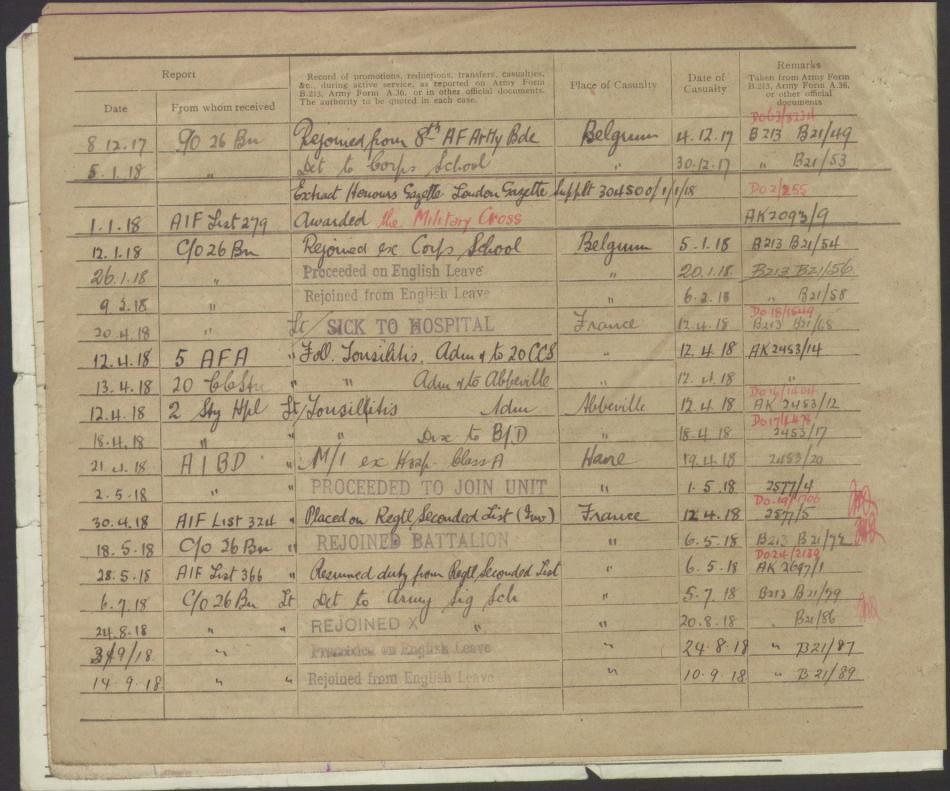 Report
Record of promotions, reductions, transfers, casualties, &c., during active service, as reported on Army Form B.213, Army Form A.36, or in other official documents. The authority to be quoted in each case.
Place of Casualty
Date of Casualty
Remarks
Taken from Army Form B.213, Army Form A.36, or other official documents
Date From whom received
8.12.17 C/O 26 Bn Rejoined from 8th AF Arty Bde Belgium 4.12.17 B213 B21/49
5.1.18 " Det to Corps School " 30.12.17 " B21/53
Extract Honours Gazette London Gazette Supplt 30450 1/1/18 DO 2/255
1.1.18 AIF List 279 Awarded the Military Cross AK 2093/9
12.1.18 C/O 26 Bn Rejoined ex Corps School Belgium 5.1.18 B213 B21/54
26.1.18 " Proceeded on English Leave " 20.1.18 B213 B21/56
9.2.18 " Rejoined from English Leave " 6.2.18 " B21/58
DO 18/1849
20.4.18 " Lt SICK TO HOSPITAL France 12.4.18 B213 B21/68
12.4.18 5 AFA " Foll. Tonsilitis. Adm & to 20 CCS " 12.4.18 AK 2453/14
13.4.18 20 CCStn " " Adm & to Abbeville " 12.4.18 "
12.4.18 2 Sty Hpl Lt Tonsillitis Adm Abbeville 12.4.18 AK 2453/12
18.4.18 " " " Dis to B/D " 18.4.18 2453/17
21.4.18 AIBD " M/I ex Hosp. Class A Havre 19.4.18 2453/20
2.5.18 " " PROCEEDED TO JOIN UNIT " 1.5.18 2577/4
DO 19/1706
30.4.18 AIF List 324 " Placed on Regtl Seconded List (Inv) France 12.4.18 2577/5
18.5.18 C/O 26 Bn " REJOINED BATTALION " 6.5.18 B213 B21/72
DO 24/2139
28.5.18 AIF List 366 " Resumed duty from Regtl Seconded List " 6.5.18 AK 2697/1
6.7.18 C/O 26 Bn Lt Det to Army Sig Sch " 5.7.18 B213 B21/79
24.8.18 " " REJOINED X " " 20.8.18 " B21/86
3/9/18 " Proceeded on English Leave " 24.8.18 " B21/87
14.9.18 " " Rejoined from English Leave " 10.9.18 " B21/89